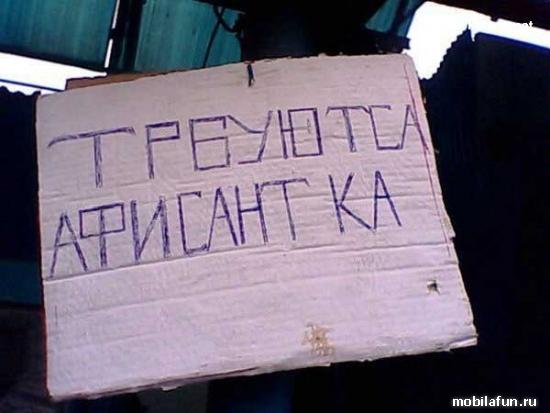 ТРБУЮТСА
АФИСАНТ КА
mobilafun.ru